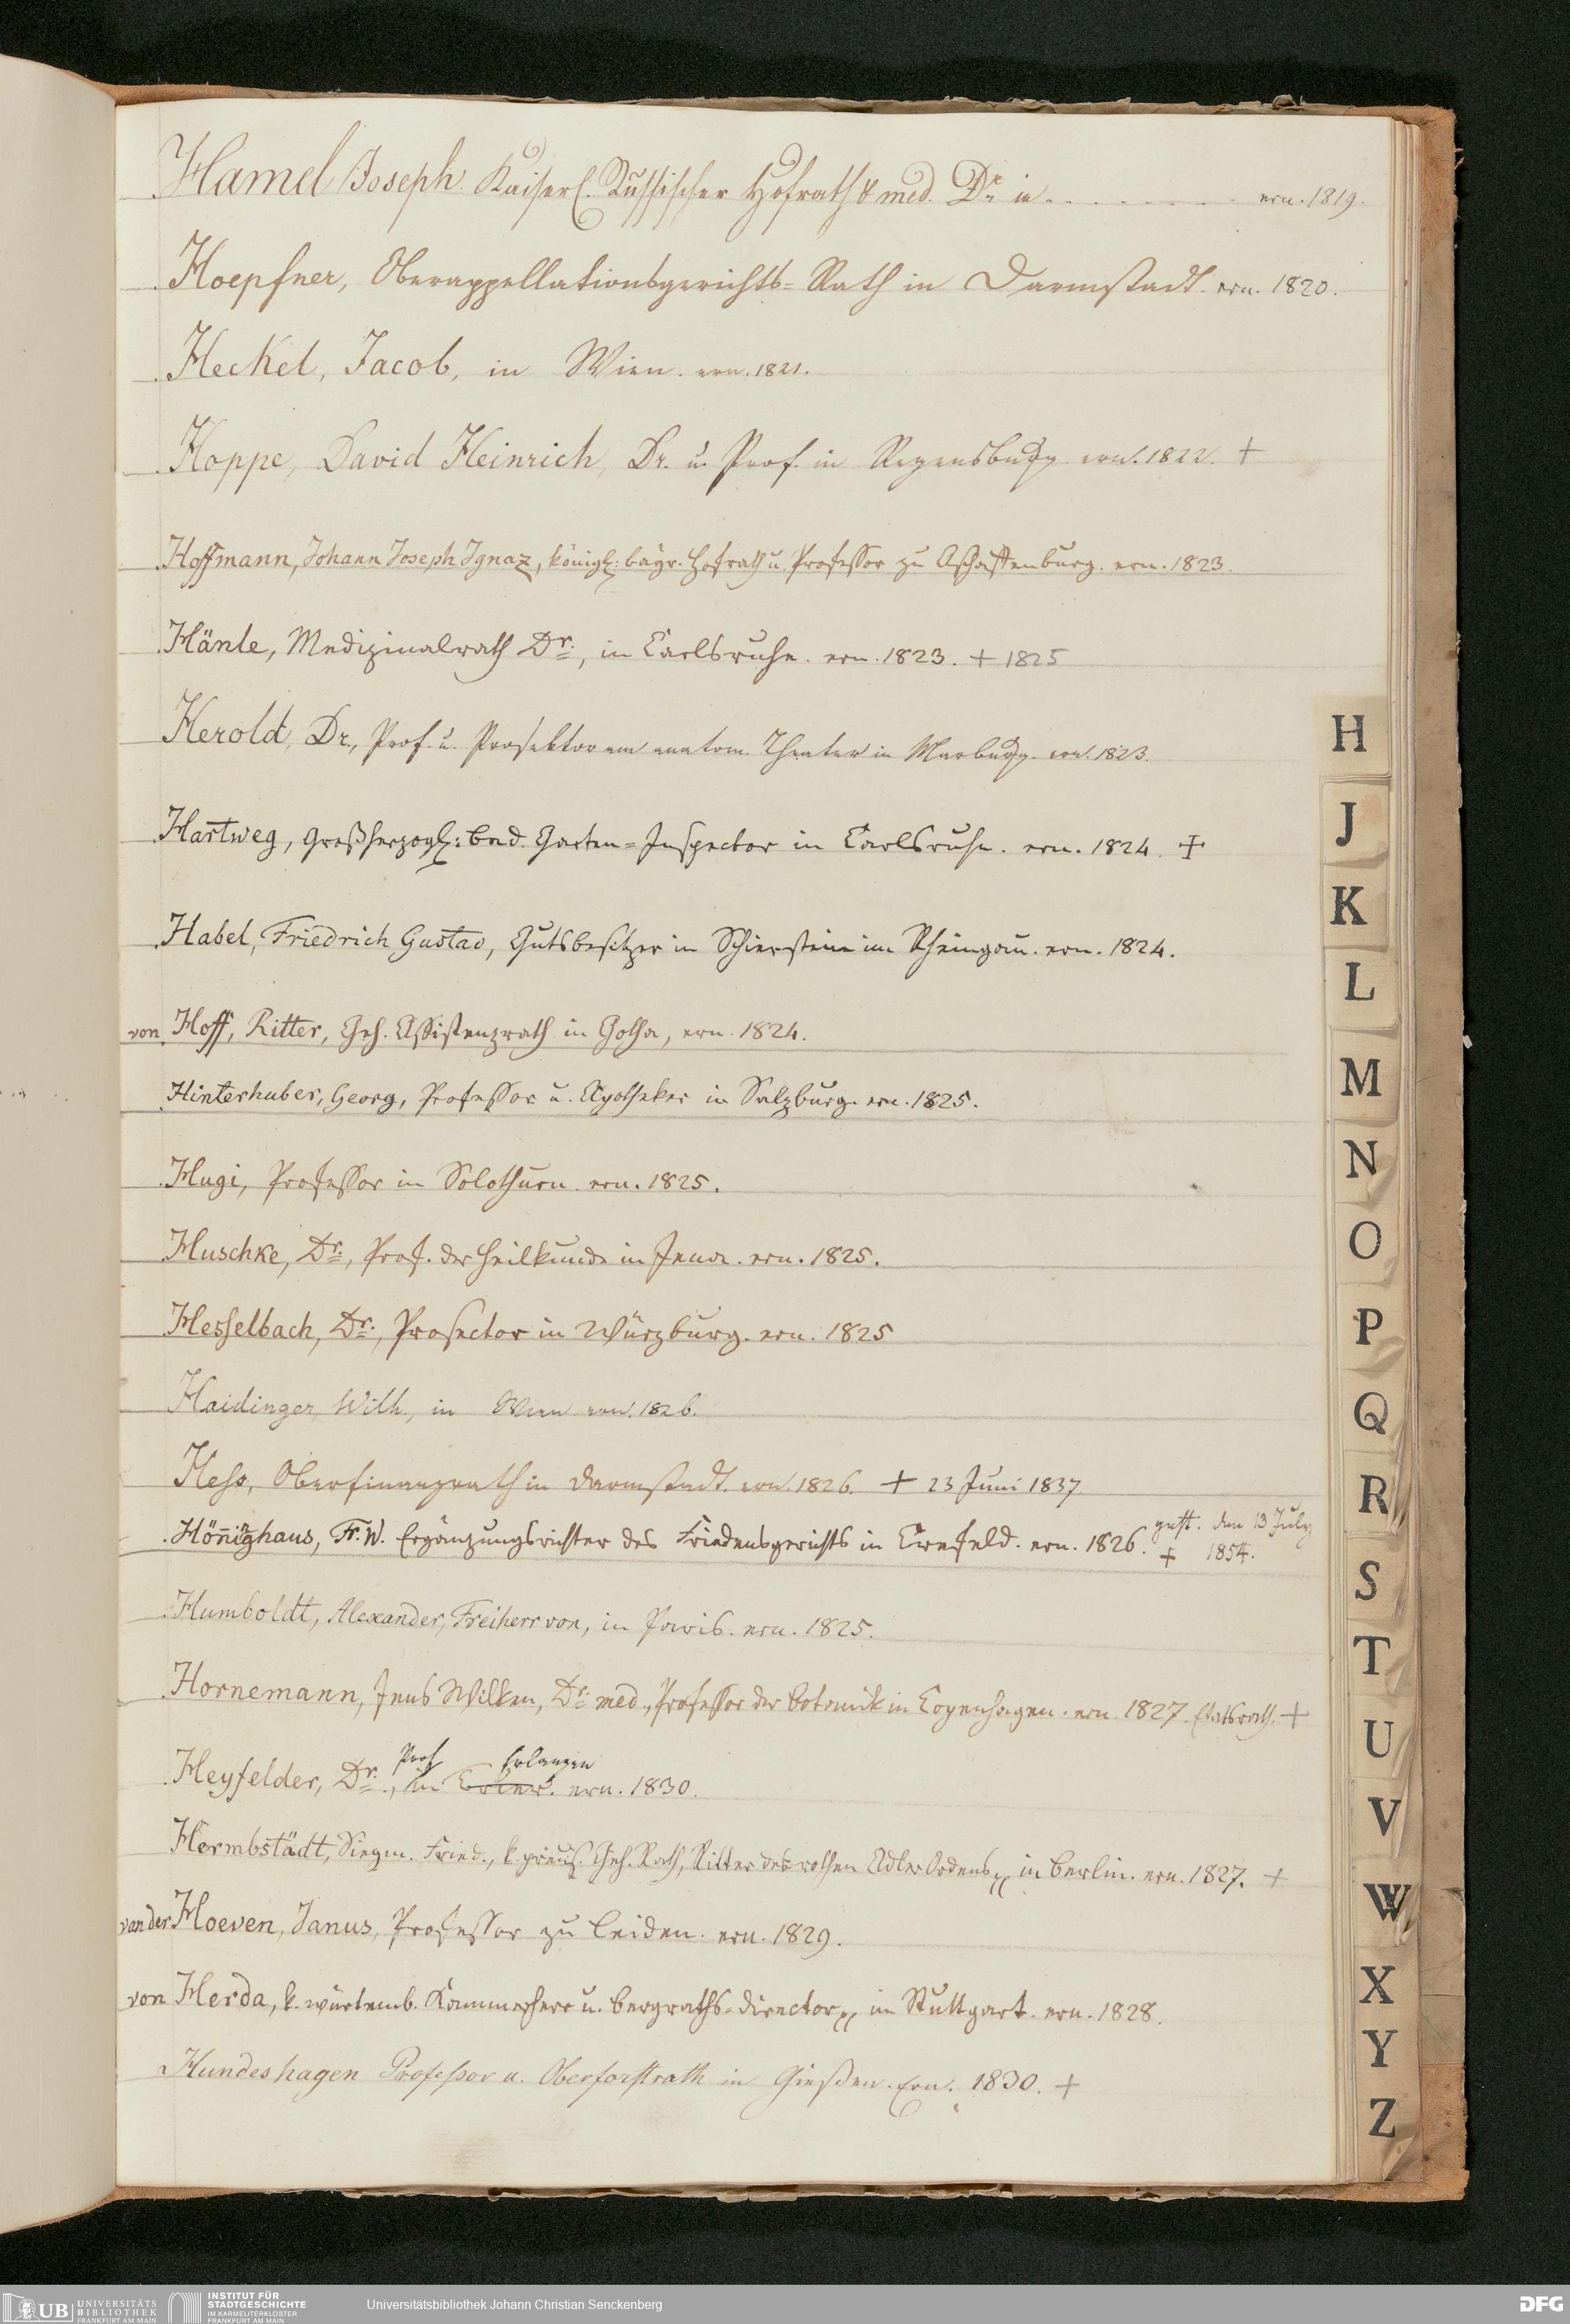 Hamel Joseph Kaiserl. Russischer Hofrath & med. Dr. in . . . . . . . . ern. 1819.
Hoepfner, Oberappellationsgerichts-Rath in Darmstadt. ern. 1820.
Heckel, Jacob, in Wien. ern. 1821.
Hoppe, David Heinrich, Dr. u. Prof. in Regensburg ern. 1822. +
Hoffmann, Johann Joseph Ignaz, königl: bayr. Hofrath u. Professor zu Aschaffenburg. ern. 1823.
Hänle, Medizinalrath Dr., in Carlsruhe. ern. 1823. + 1825
Herold, Dr., Prof. u. Prosektor am anatom. Theater in Marburg. ern. 1823.
Hartweg, Großherzogl: bad. Garten-Inspector in Carlsruhe. ern. 1824. +
Habel, Friedrich Gustav, Gutsbesitzer in Schierstein im Rheingau. ern. 1824.
von Hoff, Ritter, Geh. Assistenzrath in Gotha, ern. 1824.
Hinterhuber, Georg, Professor u. Apotheker in Salzburg. ern. 1825.
Hugi, Professor in Solothurn. ern. 1825.
Huschke, Dr., Prof. der Heilkunde in Jena. ern. 1825.
Hesselbach, Dr., Prosector in Würzburg. ern. 1825
Haidinger, Wilh., in Wien ern. 1826.
Hess, Oberfinanzrath in Darmstadt. ern. 1826. + 23 Juni 1837
Höninghaus, Fr. W. Ergänzungsrichter des Friedensgerichts in Crefeld. ern. 1826. gest. den 13 July
+ 1854.
Humboldt, Alexander, Freiherr von, in Paris. ern. 1825.
Hornemann, Jens Wilken, Dr. med., Professor der Botanik in Copenhagen. ern. 1827. Etatsrath. +
Prof Erlangen
Heyfelder, Dr., in Trier. ern. 1830.
Hermbstädt, Siegm. Fried., k. preuß. Geh. Rath, Ritter des rothen Adler Ordens in Berlin. ern. 1827. +
van der Hoeven, Janus, Professor zu Leiden. ern. 1829.
von Herda, k. würtemb. Kammerherr u. Bergraths-Director in Stuttgart. ern. 1828.
Hundeshagen Professor u. Oberforstrath in Gießen. Ern. 1830. +
H
J
K
L
M
N
O
P
Q
R
S
T
U
V
W
X
Y
Z
UB UNIVERSITÄTS
BIBLIOTHEK
FRANKFURT AM MAIN
INSTITUT FÜR
STADTGESCHICHTE
IM KARMELITERKLOSTER
FRANKFURT AM MAIN
Universitätsbibliothek Johann Christian Senckenberg
DFG